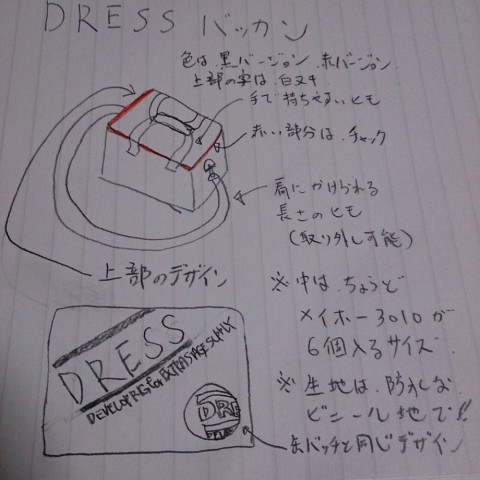 DRESS バッカン
色は、黒バージョン、赤バージョン
上部の字は、白ヌキ
手で持ちやすいヒモ
赤い部分は、チャック
肩にかけられる
長さのヒモ
(取り外し可能)
上部のデザイン
※ 中は、ちょうど
メイホー3010が
6個入るサイズ
※ 生地は、防水な
ビニール地で!!
DRESS
DRE
缶バッチと同じデザイン